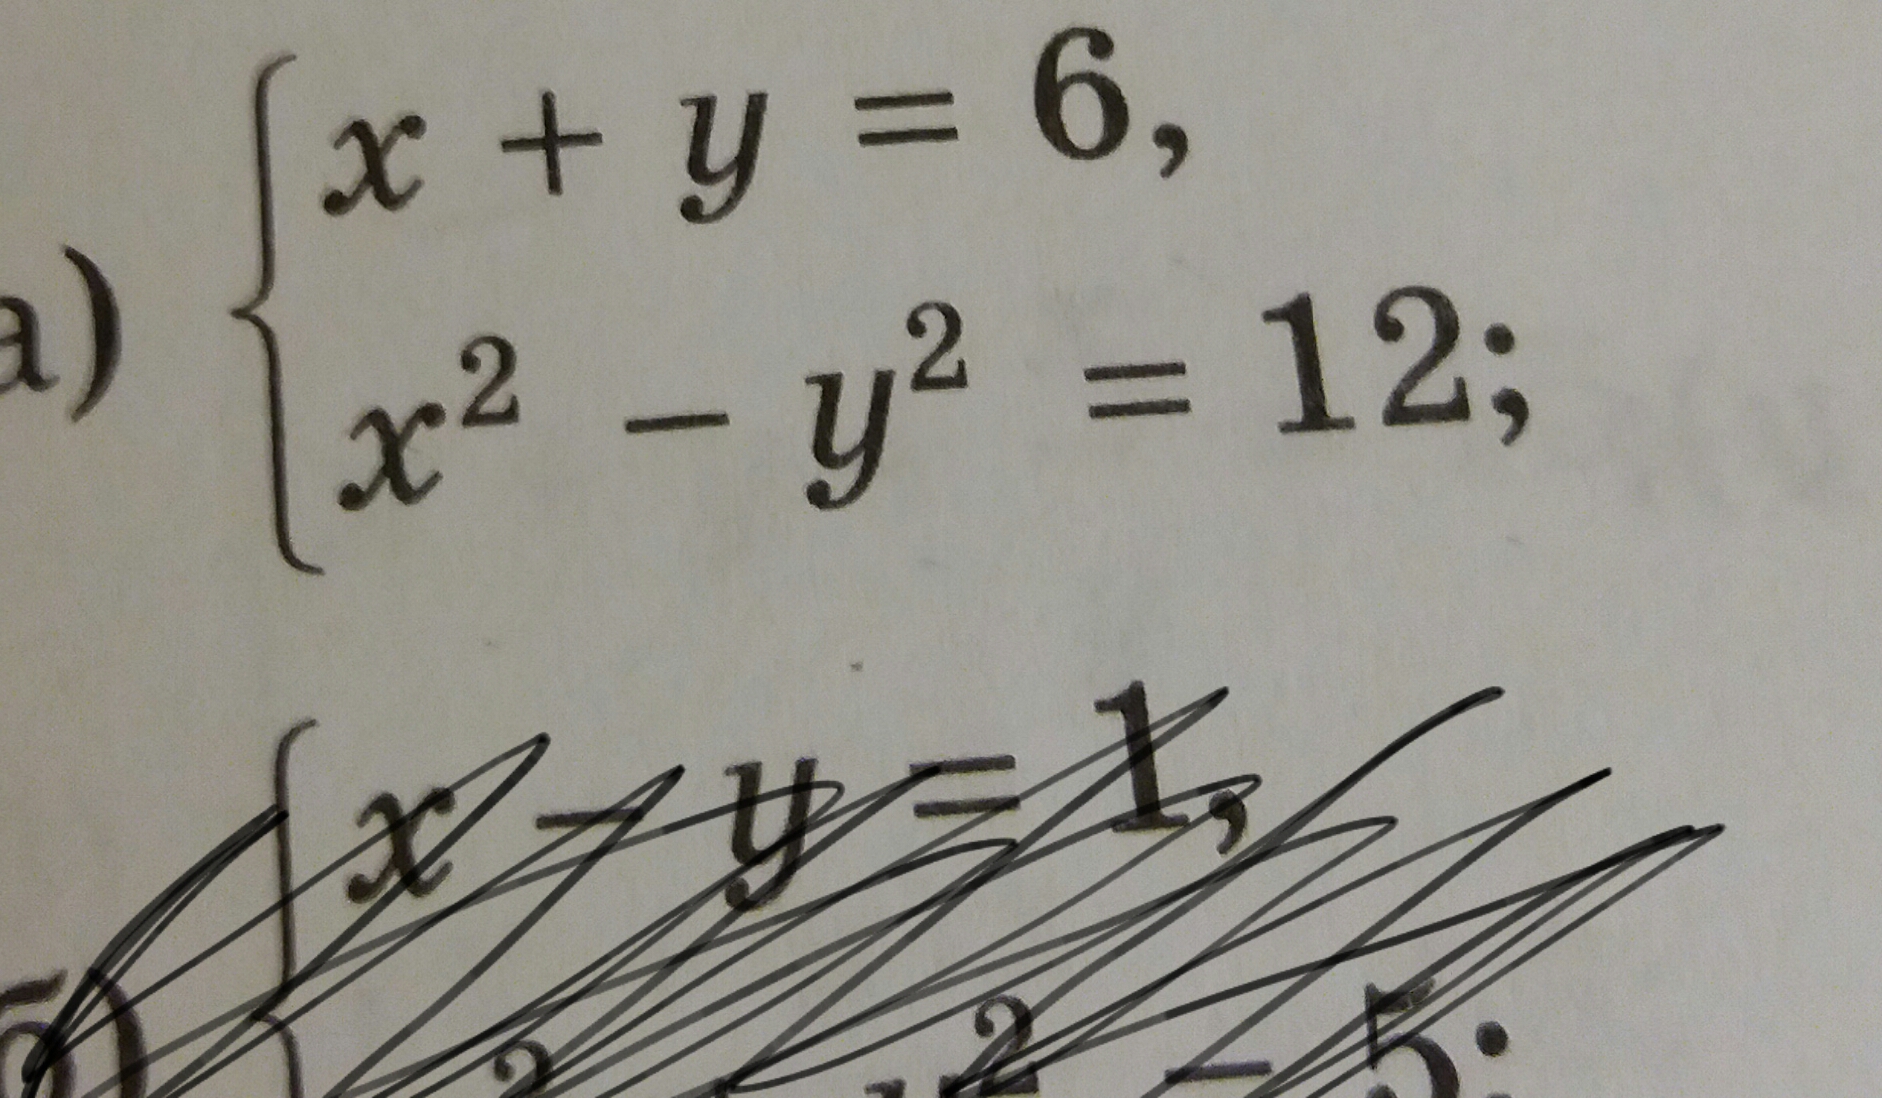 а) { x + y = 6,
x² − y² = 12;
б) { x − y = 1,